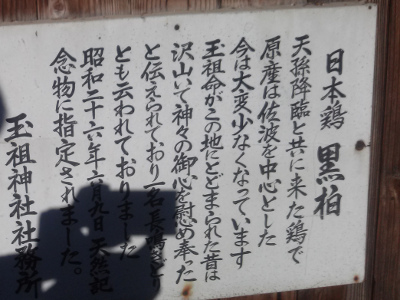 日本鶏 黒柏
天孫降臨と共に来た鶏で
原産は佐波を中心とした
今は大変少なくなっています
玉祖命がこの地にとどまられた昔は
沢山いて神々の御心を慰め奉った
と伝えられており一名長鳴きどり
とも云われておりました
昭和二十六年六月九日 天然記
念物に指定されました。
玉祖神社社務所